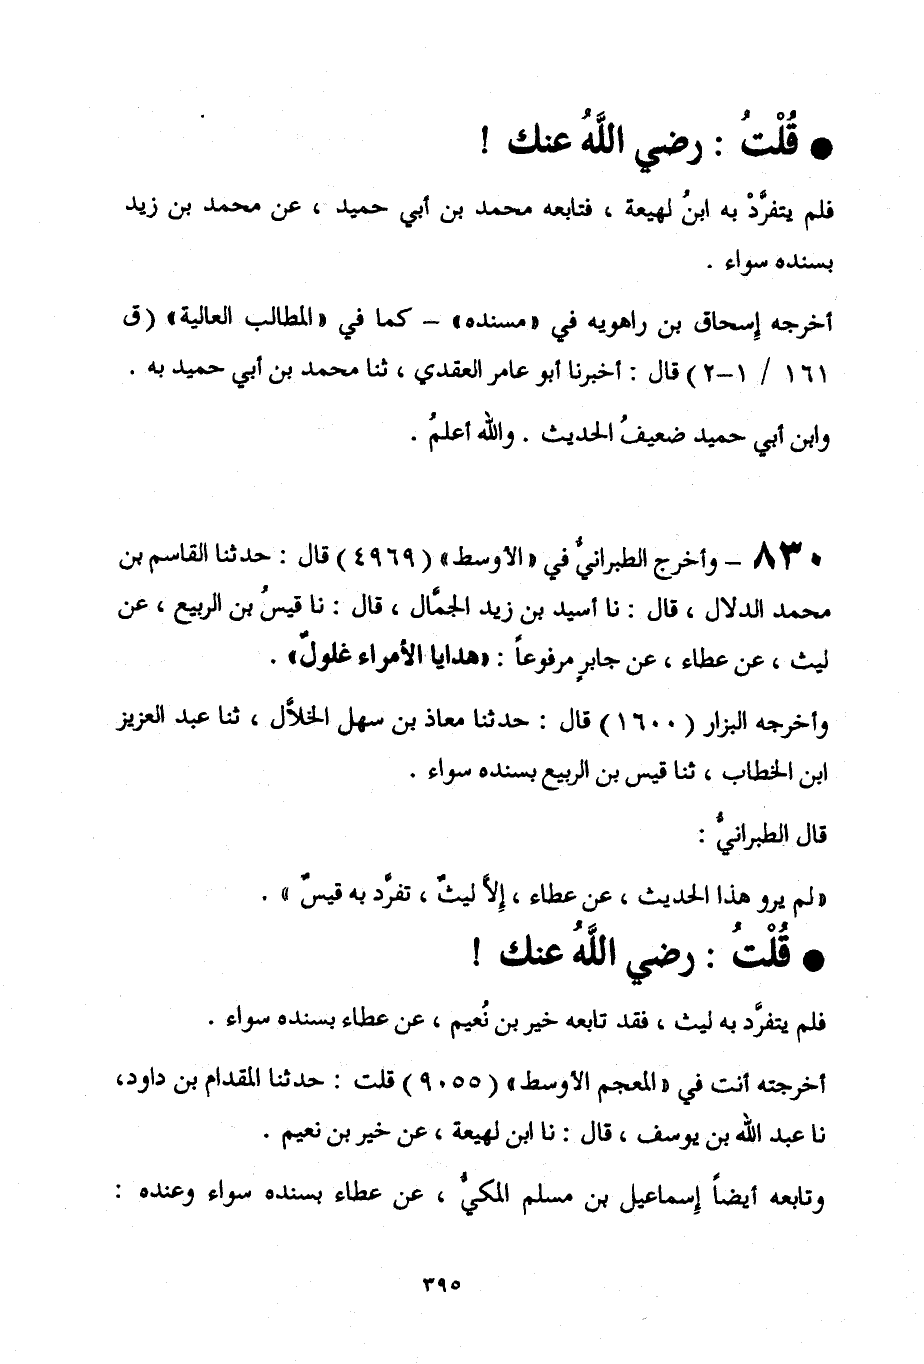 ● قُلْتُ : رضي اللَّهُ عنك !
فلم يتفرَّدْ به ابنُ لهيعة ، فتابعه محمد بن أبي حميد ، عن محمد بن زيد
بسنده سواء .
أخرجه إسحاق بن راهويه في «مسنده» – كما في «المطالب العالية» (ق
١٦١ / ١–٢) قال : أخبرنا أبو عامر العقدي ، ثنا محمد بن أبي حميد به .
وابن أبي حميد ضعيفُ الحديث . والله أعلمُ .
٨٣٠ – وأخرج الطبرانيُّ في «الأوسط» (٤٩٦٩) قال : حدثنا القاسم بن
محمد الدلال ، قال : نا أسيد بن زيد الجمَّال ، قال : نا قيسُ بن الربيع ، عن
ليث ، عن عطاء ، عن جابرٍ مرفوعاً : «هدايا الأمراء غلولٌ» .
وأخرجه البزار (١٦٠٠) قال : حدثنا معاذ بن سهل الخلاَّل ، ثنا عبد العزيز
ابن الخطاب ، ثنا قيس بن الربيع بسنده سواء .
قال الطبرانيُّ :
«لم يرو هذا الحديث ، عن عطاء ، إلاَّ ليثٌ ، تفرَّد به قيسٌ » .
● قُلْتُ : رضي اللَّهُ عنك !
فلم يتفرَّد به ليث ، فقد تابعه خير بن نُعيم ، عن عطاء بسنده سواء .
أخرجته أنت في «المعجم الأوسط» (٩٠٥٥) قلت : حدثنا المقدام بن داود،
نا عبد الله بن يوسف ، قال : نا ابن لهيعة ، عن خير بن نعيم .
وتابعه أيضاً إسماعيل بن مسلم المكيُّ ، عن عطاء بسنده سواء وعنده :
٣٩٥